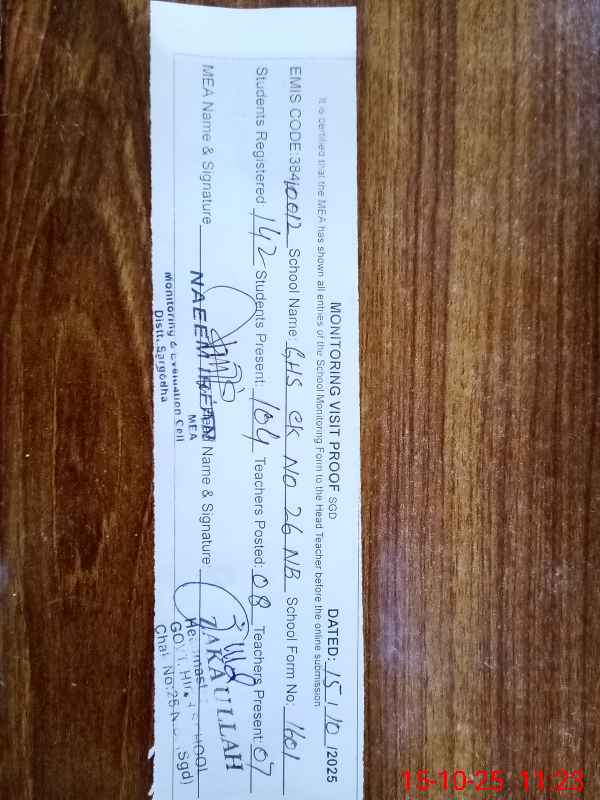 MONITORING VISIT PROOF SGD DATED: 15/10/2025
It is certified that the MEA has shown all entries of the School Monitoring Form to the Head Teacher before the online submission
EMIS CODE 38410012 School Name: GHS CK NO 26 NB School Form No: 1601
Students Registered 142 Students Present: 104 Teachers Posted: 08 Teachers Present: 07
MEA Name & Signature Name & Signature
NAEEM
MEA
Monitoring & Evaluation Cell
Distt. Sargodha
ZAKAULLAH
GOVT. HIGH SCHOOL
Chak No. (Sgd)
15-10-25 11:23